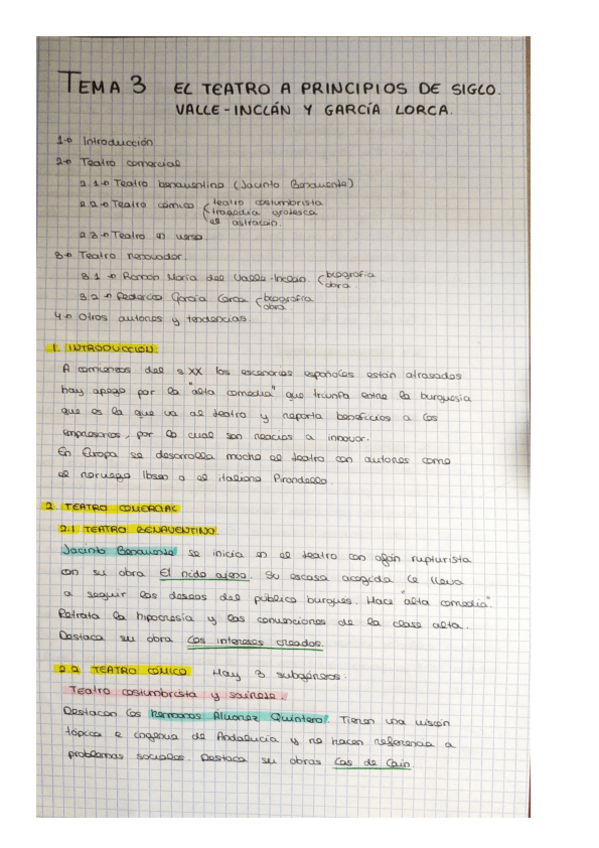 TEMA 3 EL TEATRO A PRINCIPIOS DE SIGLO.
VALLE-INCLÁN Y GARCÍA LORCA.
1.- Introducción
2.- Teatro comercial
2.1.- Teatro benaventino (Jacinto Benavente)
2.2.- Teatro cómico teatro costumbrista
tragedia grotesca
el astracán.
2.3.- Teatro en verso.
3.- Teatro renovador.
3.1.- Ramón María del Valle-Inclán. biografía
obra.
3.2.- Federico García Lorca biografía
obra
4.- Otros autores y tendencias.
1. INTRODUCCIÓN.
A comienzos del s.XX los escenarios españoles están atrasados
hay apego por la "alta comedia" que triunfa entre la burguesía
que es la que va al teatro y reporta beneficios a los
empresarios, por lo cual son reacios a innovar.
En Europa se desarrolla mucho el teatro con autores como
el noruego Ibsen o el italiano Pirandello.
2. TEATRO COMERCIAL
2.1 TEATRO BENAVENTINO.
Jacinto Benavente se inicia en el teatro con afán rupturista
con su obra El nido ajeno. Su escasa acogida le lleva
a seguir los deseos del público burgues. Hace "alta comedia"
Retrata la hipocresía y las convenciones de la clase alta.
Destaca su obra Los intereses creados.
2.2 TEATRO CÓMICO Hay 3 subgéneros:
Teatro costumbrista y sainete.
Destacan los hermanos Álvarez Quintero. Tienen una visión
tópica e ingenua de Andalucía y no hacen referencia a
problemas sociales. Destaca su obras Las de Caín.